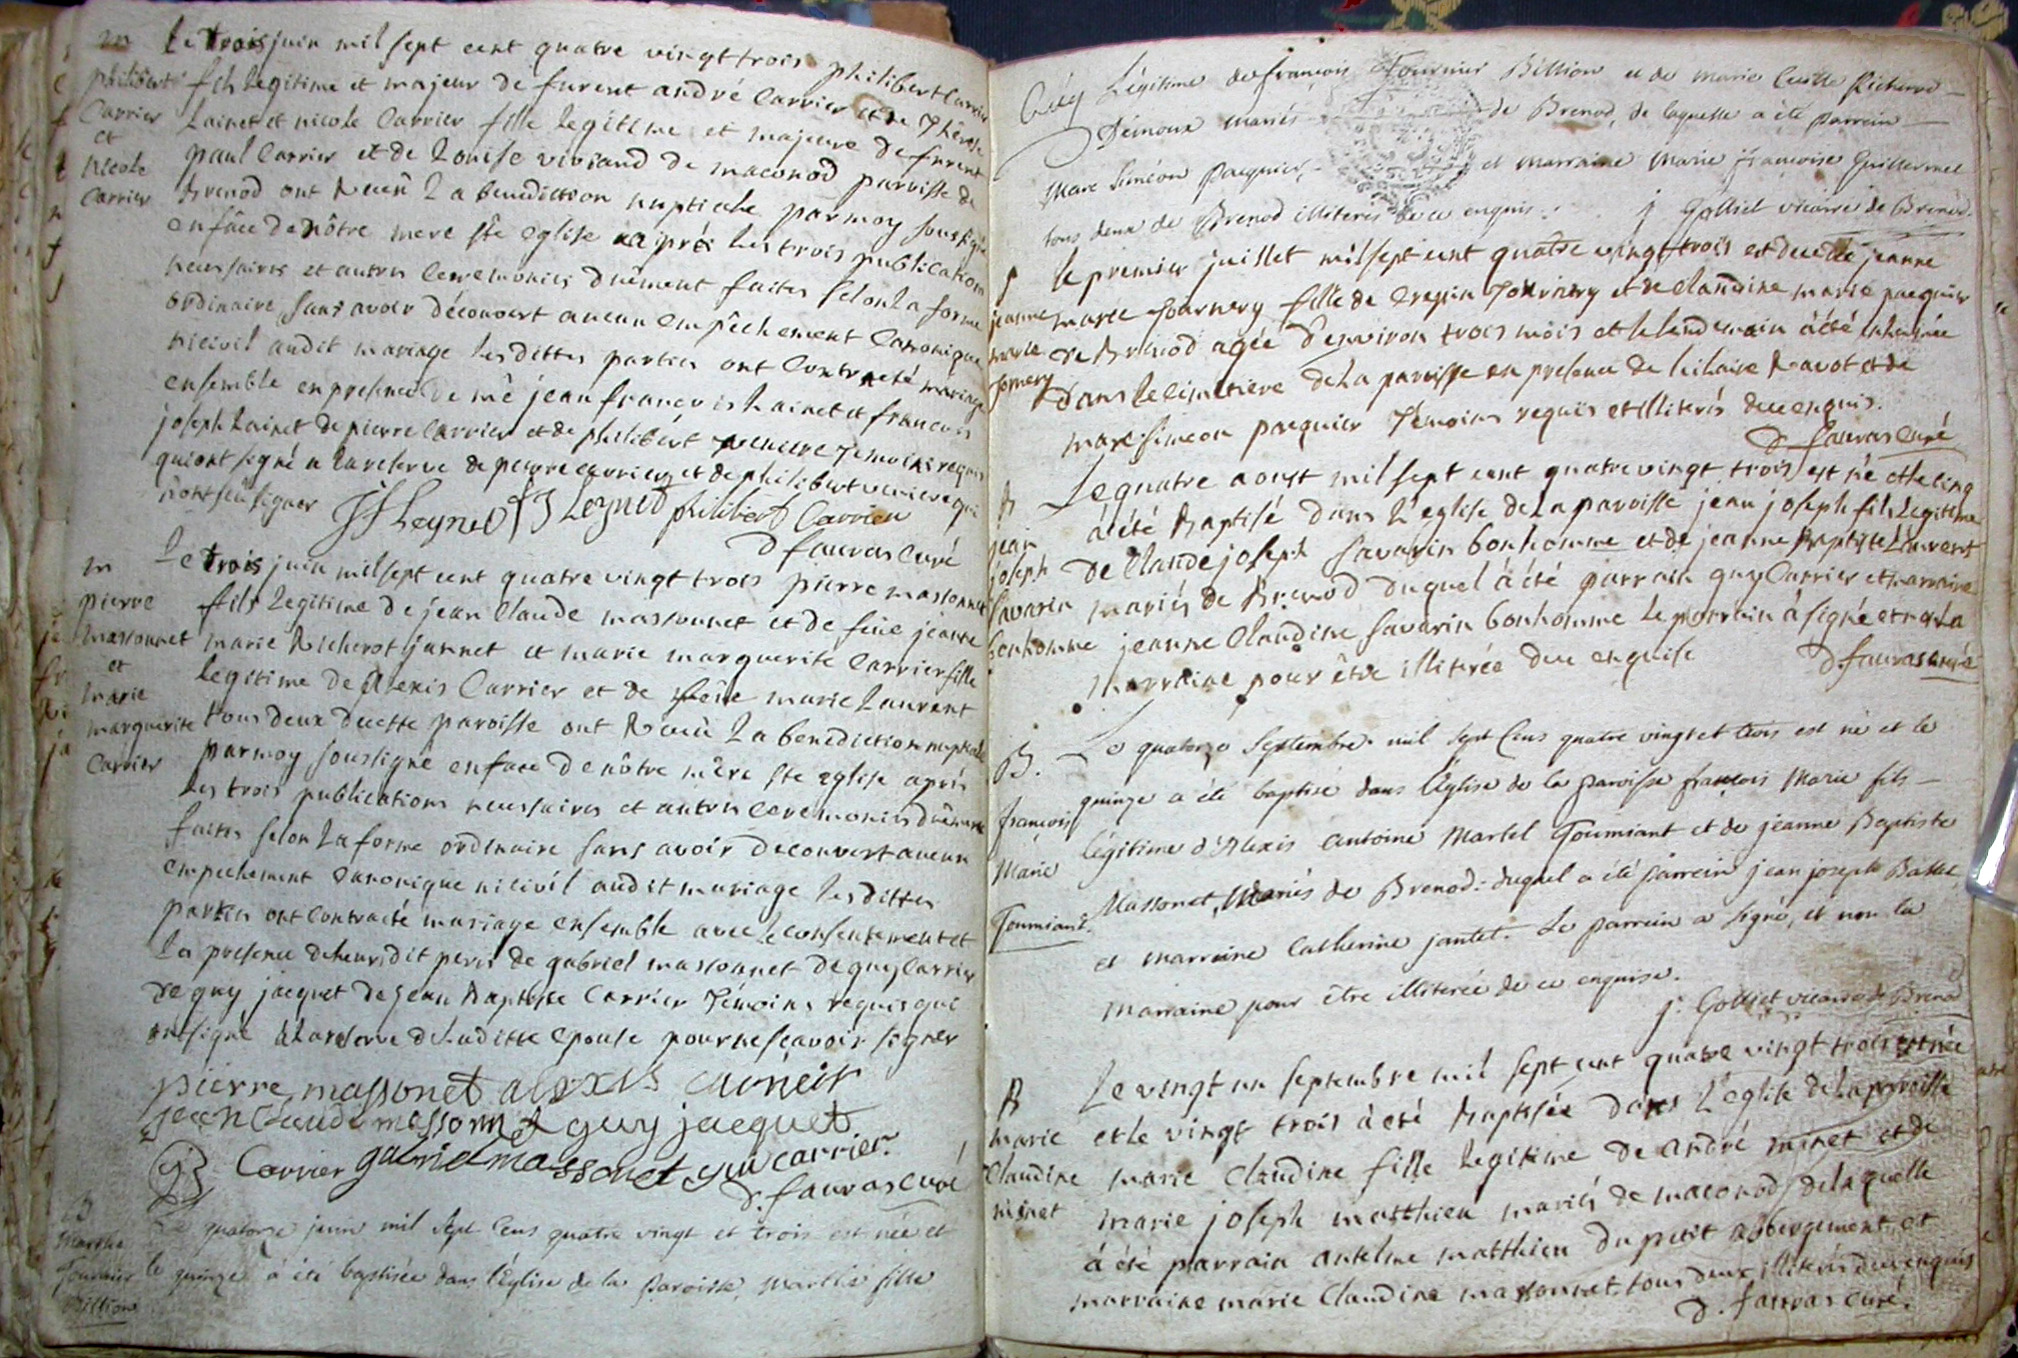 m
philibert
Carrier
et
Nicole
Carrier
Le trois juin mil sept cent quatre vingt trois philibert Carrier
fils legitime et majeur de furent andré Carrier et de Thérese
Lainet et nicole Carrier fille legitime et majeure de furent
paul Carrier et de Louise viviand de maconod paroisse de
Brenod ont Recû La benediction nuptiale par moy soussigné
en face de nôtre mere ste Eglise après les trois publications
necessaires et autres Ceremonies duëment faites selon La forme
ordinaire sans avoir découvert aucun Empêchement Canonique
ni civil audit mariage les dittes parties ont Contracté mariage
ensemble en presence de me jean francois Lainet et francois
joseph Lainet de pierre Carrier et de philibert Temoins requis
qui ont signé a la reserve de pierre carrier et de philibert qui
n'ont seû signer
philibert Carrier
D favras Curé
m
pierre
massonnet
et
marie
marguerite
Carrier
Le trois juin mil sept cent quatre vingt trois pierre massonnet
fils Legitime de jean Claude massonnet et de feüe jeanne
marie Richerot jannet et marie marguerite Carrier fille
legitime de Alexis Carrier et de feüe marie Laurent
tous deux de cette paroisse ont Recû La benediction nuptiale
par moy soussigné en face de nôtre mêre ste eglise aprés
les trois publications necessaires et autres Ceremonies duëment
faites selon La forme ordinaire sans avoir decouvert aucun
empechement Canonique ni civil audit mariage les dittes
parties ont Contracté mariage ensemble avec le consentement et
la presence de leursdit peres de gabriel massonnet de guy Carrier
de guy jacquet de jean Baptiste Carrier Témoins requis qui
ont signé a la reserve de laditte epouse pour ne sçavoir signer
pierre massonet alexis
jean Claude massonnet guy jacquet
Carrier gabriel massonet gui carrier
D. favras Curé
Marthe
Fournier
Billion
Le quatorze juin mil sept Cens quatre vingt et trois est née et
le quinze a été baptisée dans l'Eglise de la Paroisse, Marthe fille
Légitime de françois Fournier Billion et de Marie Richerod
Démoux mariés de Brenod, de laquelle a été parrein
Marc Siméon pacquier, et marraine Marie françoise Guillermet
tous deux de Brenod illiterés de ce enquis. j Golliet vicaire de Brenod.
jeanne
marie
fornery
Le premier juillet mil sept cent quatre vingt trois est decedé jeanne
marie fournery fille de Crepin Fournery et de Claudine marie pacquier
de Brenod agée d'environ trois mois et le lendemain à été inhumée
dans le cimetiere de La paroisse en presence de hilaire Ravot et de
marc simeon pacquier Témoins requis et illiterés de ce enquis.
D favras Curé
B
jean
joseph
Savarin
bonhomme
Le quatre aoust mil sept cent quatre vingt trois est né et le cinq
à été Baptisé dans L'eglise de La paroisse jean joseph fils Legitime
de Claude joseph Savarin bonhomme et de jeanne Baptiste Laurent
mariés de Brenod duquel à été parrain guy Carrier et marraine
jeanne Claudine Savarin bonhomme Le parrain à signé et non La
marraine pour être illiterée de ce enquise
D favras Curé
B.
françois
Marie
Goumiant.
Le quatorze Septembre mil sept Cens quatre vingt et trois est né et le
quinze a été baptisé dans l'Eglise de la Paroisse françois Marie fils
légitime d'Alexis Antoine Martel Goumiant et de jeanne Baptiste
Massonet, Mariés de Brenod: duquel a été parrein jean joseph
et marraine Catherine jantet. Le parrein a signé, et non la
Marraine pour être illiterée de ce enquise.
j. Golliet vicaire de Brenod
B
marie
Claudine
minet
Le vingt un septembre mil sept cent quatre vingt trois est née
et le vingt trois à eté Baptisée dans L'eglise de La paroisse
marie Claudine fille legitime de andré minet et de
marie joseph matthieu mariés de maconod de laquelle
à été parrain antelme matthieu du petit abbergement et
marraine marie Claudine massonnet tous deux illiterés de ce enquis
D. favras Curé.